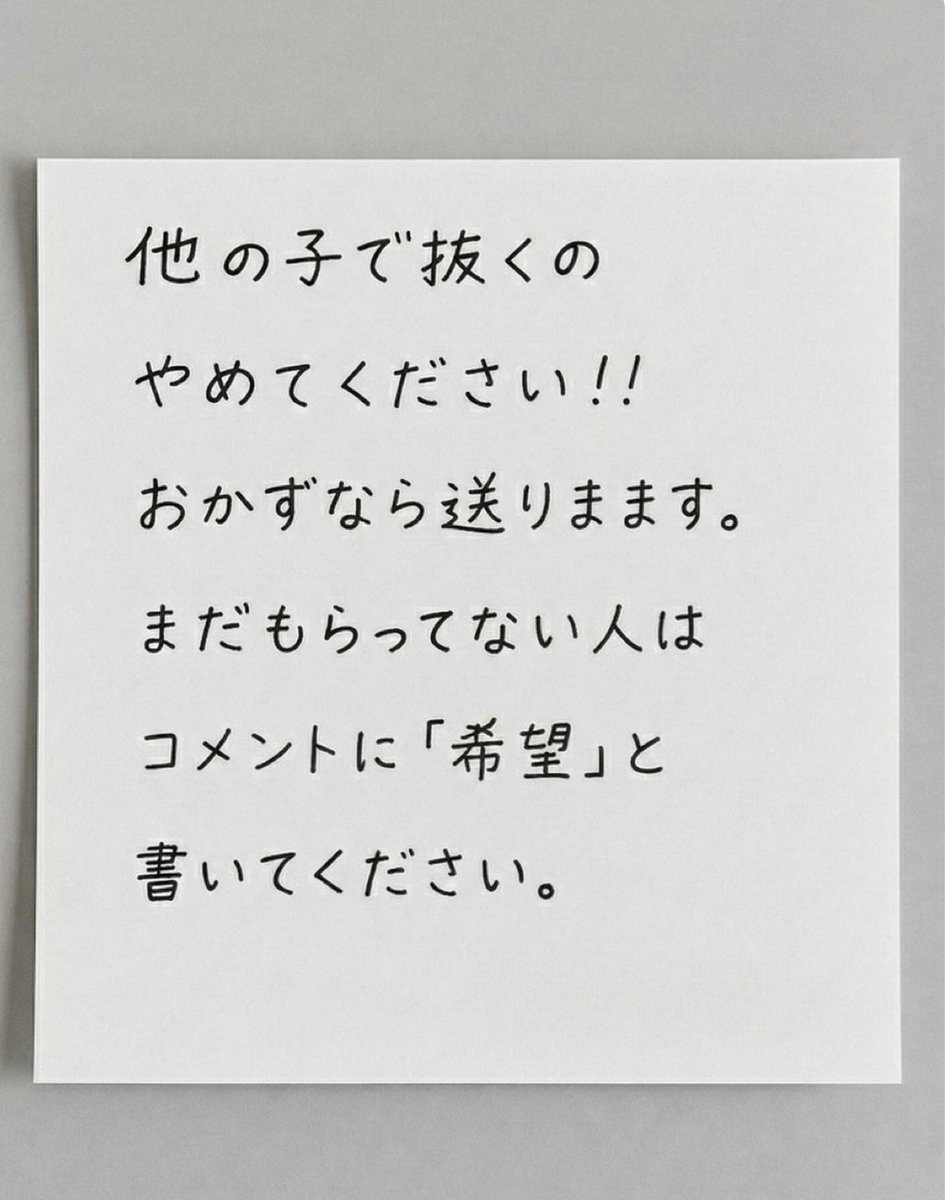 他の子で抜くの
やめてください!!
おかずなら送りまます。
まだもらってない人は
コメントに「希望」と
書いてください。